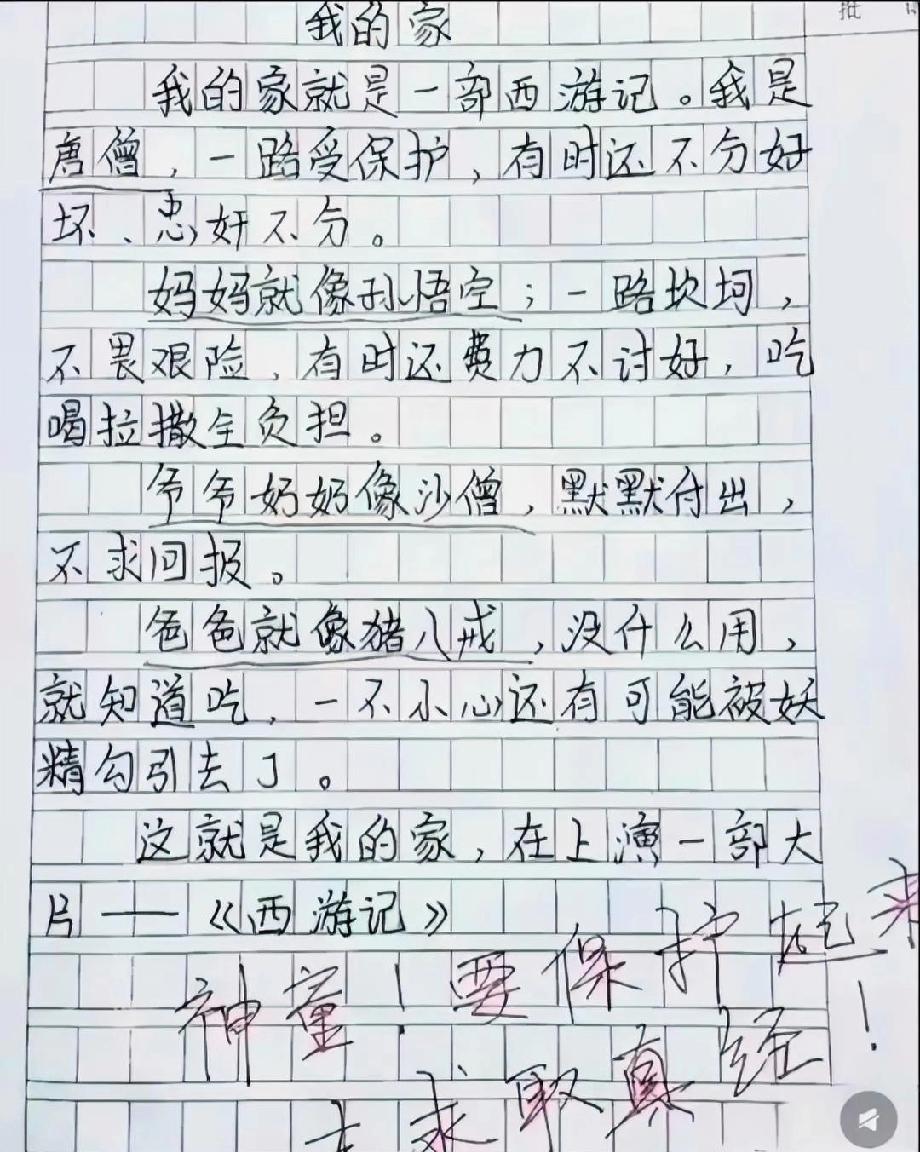 批
我的家
我的家就是一部西游记。我是
唐僧，一路受保护，有时还不分好
坏、忠奸不分。
妈妈就像孙悟空；一路坎坷，
不畏艰险，有时还费力不讨好，吃
喝拉撒全负担。
爷爷奶奶像沙僧，默默付出，
不求回报。
爸爸就像猪八戒，没什么用，
就知道吃，一不小心还有可能被妖
精勾引去了。
这就是我的家，在上演一部大
片——《西游记》
神童！要保护起来！
去求取真经